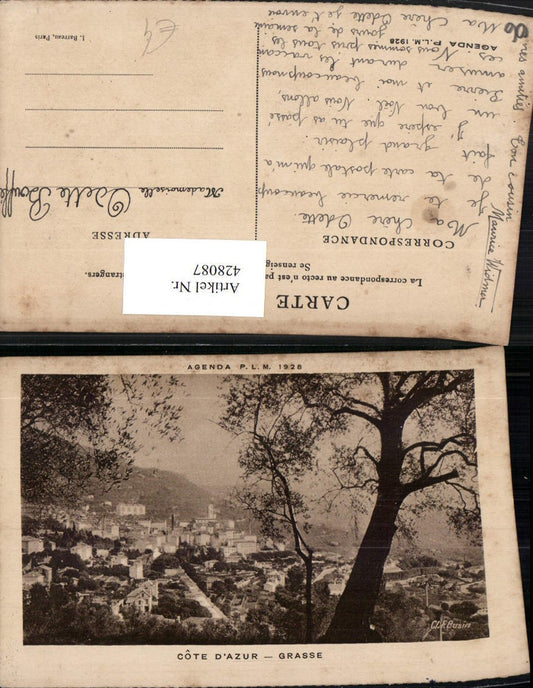 CARTE
La correspondance au recto n'est pa
Se renseig
trangers.
CORRESPONDANCE
ADRESSE
Ma chère Odette
Je te remercie beaucoup
de ta carte postale qui m'a
fait grand plaisir
J'espère que tu as passé
un bon Noël. Nous allons,
Pierre et moi beaucoup nous
amuser durant les vacan-
ces. Nous sommes pris tous les
jours de la semaine
Ma chère Odette je t'envoi
mes amitiés. Ton cousin
Maurice Widmer
Mademoiselle Odette
AGENDA P.L.M. 1928
I. Barreau, Paris
Artikel Nr.
428087
AGENDA P.L.M. 1928
CÔTE D'AZUR — GRASSE